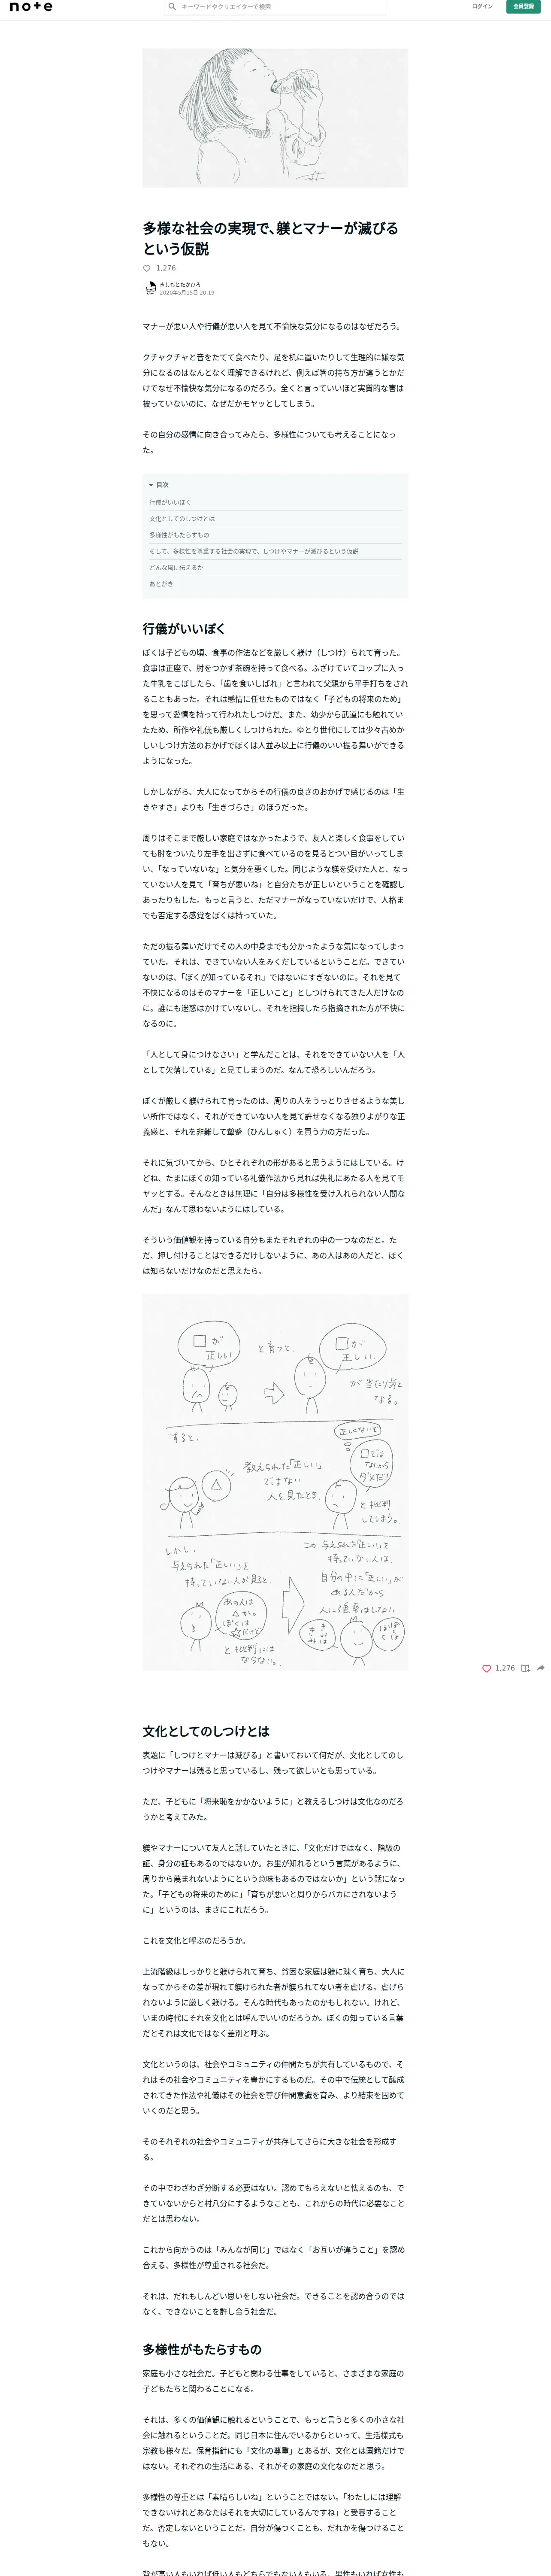 note
キーワードやクリエイターで検索
ログイン
会員登録
多様な社会の実現で、躾とマナーが滅びる
という仮説
1,276
きしもとたかひろ
2020年5月15日 20:19
マナーが悪い人や行儀が悪い人を見て不愉快な気分になるのはなぜだろう。
クチャクチャと音をたてて食べたり、足を机に置いたりして生理的に嫌な気
分になるのはなんとなく理解できるけれど、例えば箸の持ち方が違うとかだ
けでなぜ不愉快な気分になるのだろう。全くと言っていいほど実質的な害は
被っていないのに、なぜだかモヤッとしてしまう。
その自分の感情に向き合ってみたら、多様性についても考えることになっ
た。
目次
行儀がいいぼく
文化としてのしつけとは
多様性がもたらすもの
そして、多様性を尊重する社会の実現で、しつけやマナーが滅びるという仮説
どんな風に伝えるか
あとがき
行儀がいいぼく
ぼくは子どもの頃、食事の作法などを厳しく躾け（しつけ）られて育った。
食事は正座で、肘をつかず茶碗を持って食べる。ふざけていてコップに入っ
た牛乳をこぼしたら、「歯を食いしばれ」と言われて父親から平手打ちをされ
ることもあった。それは感情に任せたものではなく「子どもの将来のため」
を思って愛情を持って行われたしつけだ。また、幼少から武道にも触れてい
たため、所作や礼儀も厳しくしつけられた。ゆとり世代にしては少々古めか
しいしつけ方法のおかげでぼくは人並み以上に行儀のいい振る舞いができる
ようになった。
しかしながら、大人になってからその行儀の良さのおかげで感じるのは「生
きやすさ」よりも「生きづらさ」のほうだった。
周りはそこまで厳しい家庭ではなかったようで、友人と楽しく食事をしてい
ても肘をついたり左手を出さずに食べているのを見るとつい目がいってしま
い、「なっていないな」と気分を悪くした。同じような躾を受けた人と、なっ
ていない人を見て「育ちが悪いね」と自分たちが正しいということを確認し
あったりもした。もっと言うと、ただマナーがなっていないだけで、人格ま
でも否定する感覚をぼくは持っていた。
ただの振る舞いだけでその人の中身までも分かったような気になってしまっ
ていた。それは、できていない人をみくだしているということだ。できてい
ないのは、「ぼくが知っているそれ」ではないにすぎないのに。それを見て
不快になるのはそのマナーを「正しいこと」としつけられてきた人だけなの
に。誰にも迷惑はかけていないし、それを指摘したら指摘された方が不快に
なるのに。
「人として身につけなさい」と学んだことは、それをできていない人を「人
として欠落している」と見てしまうのだ。なんて恐ろしいんだろう。
ぼくが厳しく躾けられて育ったのは、周りの人をうっとりさせるような美し
い所作ではなく、それができていない人を見て許せなくなる独りよがりな正
義感と、それを非難して顰蹙（ひんしゅく）を買う力の方だった。
それに気づいてから、ひとそれぞれの形があると思うようにはしている。け
どね、たまにぼくの知っている礼儀作法から見れば失礼にあたる人を見てモ
ヤッとする。そんなときは無理に「自分は多様性を受け入れられない人間な
んだ」なんて思わないようにはしている。
そういう価値観を持っている自分もまたそれぞれの中の一つなのだと。た
だ、押し付けることはできるだけしないように、あの人はあの人だと、ぼく
は知らないだけなのだと思えたら。
□が
正しい
と育つと、
□が
正しい
が当たり前と
なる。
すると、
正しくないぞ
教えられた「正しい」
ではない
人を見たとき、
□では
ないから
ダメだ!
と批判
してしまう。
しかし
与えられた「正しい」を
持っていない人が見ると、
あの人は
△か。
ぼくは
☆だけど
と批判には
ならない。
この、与えられた「正しい」を
持っていない人は、
自分の中に「正しい」が
ある人だから
人に強要はしない
きみは
きみ
ぼくは
ぼく
1,276
文化としてのしつけとは
表題に「しつけとマナーは滅びる」と書いておいて何だが、文化としてのし
つけやマナーは残ると思っているし、残って欲しいとも思っている。
ただ、子どもに「将来恥をかかないように」と教えるしつけは文化なのだろ
うかと考えてみた。
躾やマナーについて友人と話していたときに、「文化だけではなく、階級の
証、身分の証もあるのではないか。お里が知れるという言葉があるように、
周りから蔑まれないようにという意味もあるのではないか」という話になっ
た。「子どもの将来のために」「育ちが悪いと周りからバカにされないよう
に」というのは、まさにこれだろう。
これを文化と呼ぶのだろうか。
上流階級はしっかりと躾けられて育ち、貧困な家庭は躾に疎く育ち、大人に
なってからその差が現れて躾けられた者が躾られてない者を虐げる。虐げら
れないように厳しく躾ける。そんな時代もあったのかもしれない。けれど、
いまの時代にそれを文化とは呼んでいいのだろうか。ぼくの知っている言葉
だとそれは文化ではなく差別と呼ぶ。
文化というのは、社会やコミュニティの仲間たちが共有しているもので、そ
れはその社会やコミュニティを豊かにするものだ。その中で伝統として醸成
されてきた作法や礼儀はその社会を尊び仲間意識を育み、より結束を固めて
いくのだと思う。
そのそれぞれの社会やコミュニティが共存してさらに大きな社会を形成す
る。
その中でわざわざ分断する必要はない。認めてもらえないと怯えるのも、で
きていないからと村八分にするようなことも、これからの時代に必要なこと
だとは思わない。
これから向かうのは「みんなが同じ」ではなく「お互いが違うこと」を認め
合える、多様性が尊重される社会だ。
それは、だれもしんどい思いをしない社会だ。できることを認め合うのでは
なく、できないことを許し合う社会だ。
多様性がもたらすもの
家庭も小さな社会だ。子どもと関わる仕事をしていると、さまざまな家庭の
子どもたちと関わることになる。
それは、多くの価値観に触れるということで、もっと言うと多くの小さな社
会に触れるということだ。同じ日本に住んでいるからといって、生活様式も
宗教も様々だ。保育指針にも「文化の尊重」とあるが、文化とは国籍だけで
はない。それぞれの生活にある、それがその家庭の文化なのだと思う。
多様性の尊重とは「素晴らしいね」ということではない。「わたしには理解
できないけれどあなたはそれを大切にしているんですね」と受容すること
だ。否定しないということだ。自分が傷つくことも、だれかを傷つけること
もない。
背が高い人もいれば低い人もどちらでもない人もいる。男性もいれば女性も